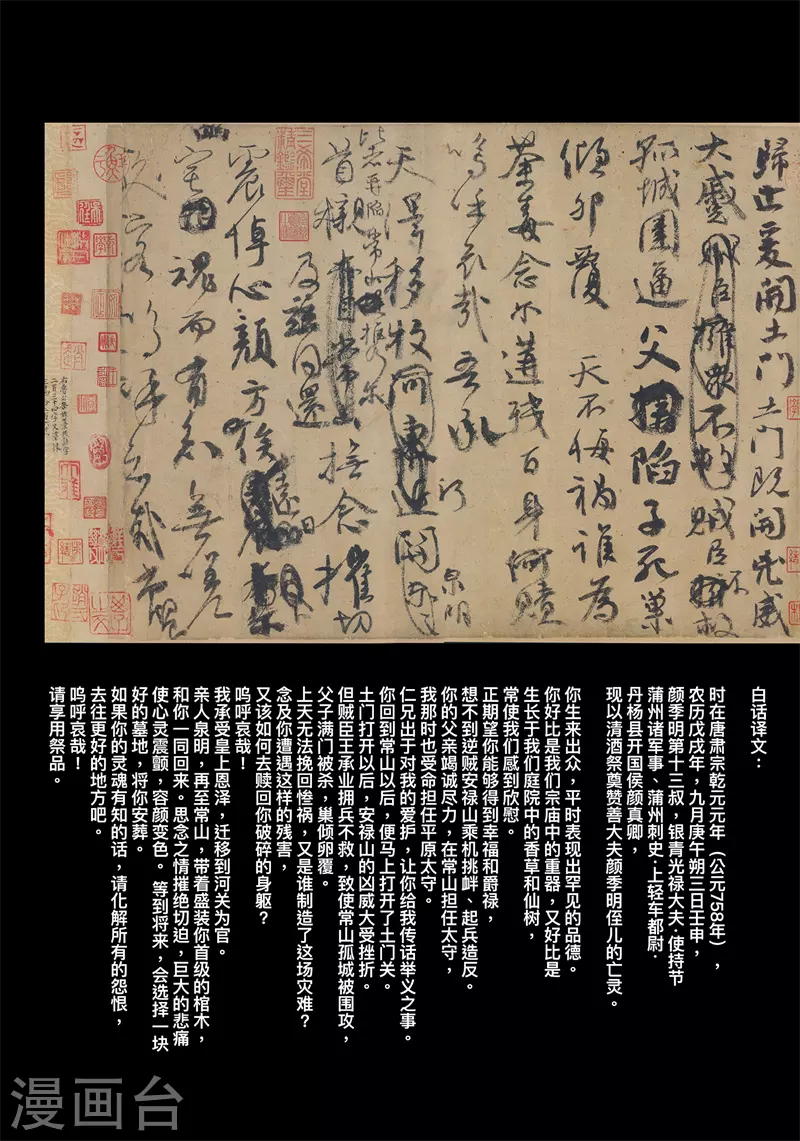 歸止爰開土門土門既開兇威
大蹙賊臣不救
孤城圍逼父陷子死巢
傾卵覆天不悔禍誰為
荼毒念爾遘殘百身何贖
嗚呼哀哉吾承
天澤移牧河關泉明
比者再陷常山攜爾
首櫬及茲同還撫念摧切
震悼心顏方俟遠日
宅魂而有知無嗟
久客嗚呼哀哉尚饗
白话译文：
时在唐肃宗乾元元年（公元758年），
农历戊戌年，九月庚午朔三日壬申，
颜季明第十三叔，银青光禄大夫·使持节
蒲州诸军事、蒲州刺史·上轻车都尉·
丹杨县开国侯颜真卿，
现以清酒祭奠赞善大夫颜季明侄儿的亡灵。
你生来出众，平时表现出罕见的品德。
你好比是我们宗庙中的重器，又好比是
生长于我们庭院中的香草和仙树，
常使我们感到欣慰。
正期望你能够得到幸福和爵禄，
想不到逆贼安禄山乘机挑衅、起兵造反。
你的父亲竭诚尽力，在常山担任太守，
我那时也受命担任平原太守。
仁兄出于对我的爱护，让你给我传话举义之事。
你回到常山以后，便马上打开了土门关。
土门打开以后，安禄山的凶威大受挫折。
但贼臣王承业拥兵不救，致使常山孤城被围攻，
父子满门被杀，巢倾卵覆。
上天无法挽回惨祸，又是谁制造了这场灾难？
念及你遭遇这样的残害，
又该如何去赎回你破碎的身躯？
呜呼哀哉！
我承受皇上恩泽，迁移到河关为官。
亲人泉明，再至常山，带着盛装你首级的棺木，
和你一同回来。思念之情摧绝切迫，巨大的悲痛
使心灵震颤，容颜变色。等到将来，会选择一块
好的墓地，将你安葬。
如果你的灵魂有知的话，请化解所有的怨恨，
去往更好的地方吧。
呜呼哀哉！
请享用祭品。
漫画台